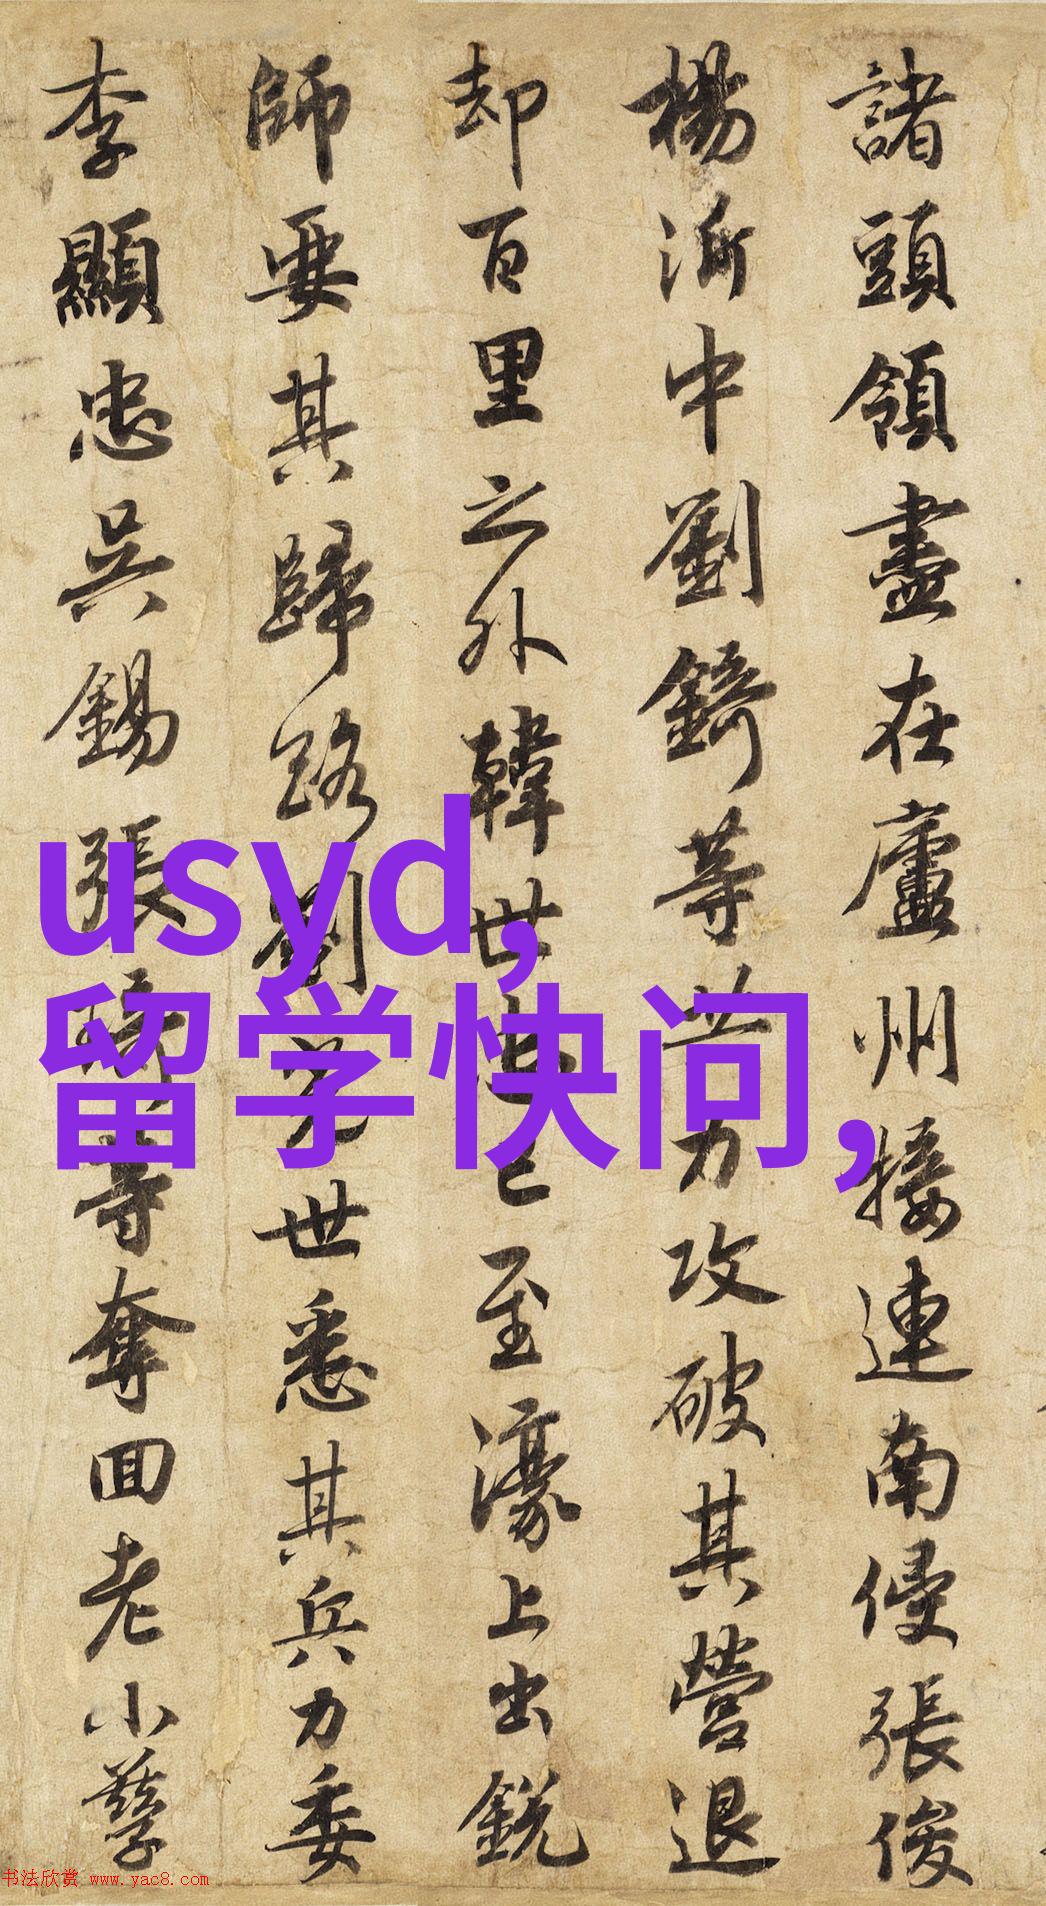 諸頭領盡在廬州接連南侵張俊
楊沂中劉錡等共力攻破其營退
却百里之外韓世忠已至濠上出銳
師要其歸路劉光世悉其兵力委
李顯忠吳錫張琦等奪回老小孳
usyd,
留学快问,
书法欣赏 www.yac8.com